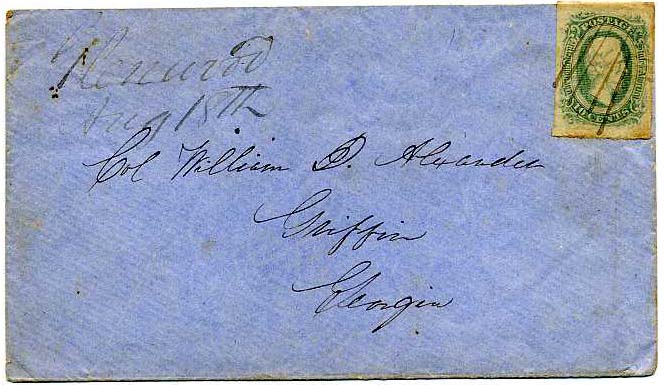 Glenwood
Aug 18th
Col William D. Alexander
Griffin
Georgia
POSTAGE
TEN CENTS